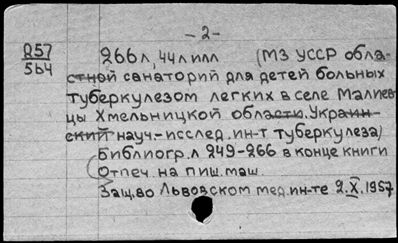 - 2 -
257
564
266 л, 44 л илл (МЗ УССР обла-
стной санаторий для детей больных
туберкулезом легких в селе Малиев-
цы Хмельницкой области. Украин-
ский науч.-исслед. ин-т туберкулеза)
Библиогр. л 249-266 в конце книги
Отпеч. на пиш. маш
Защ. во Львовском мед. ин-те 2.X.1957